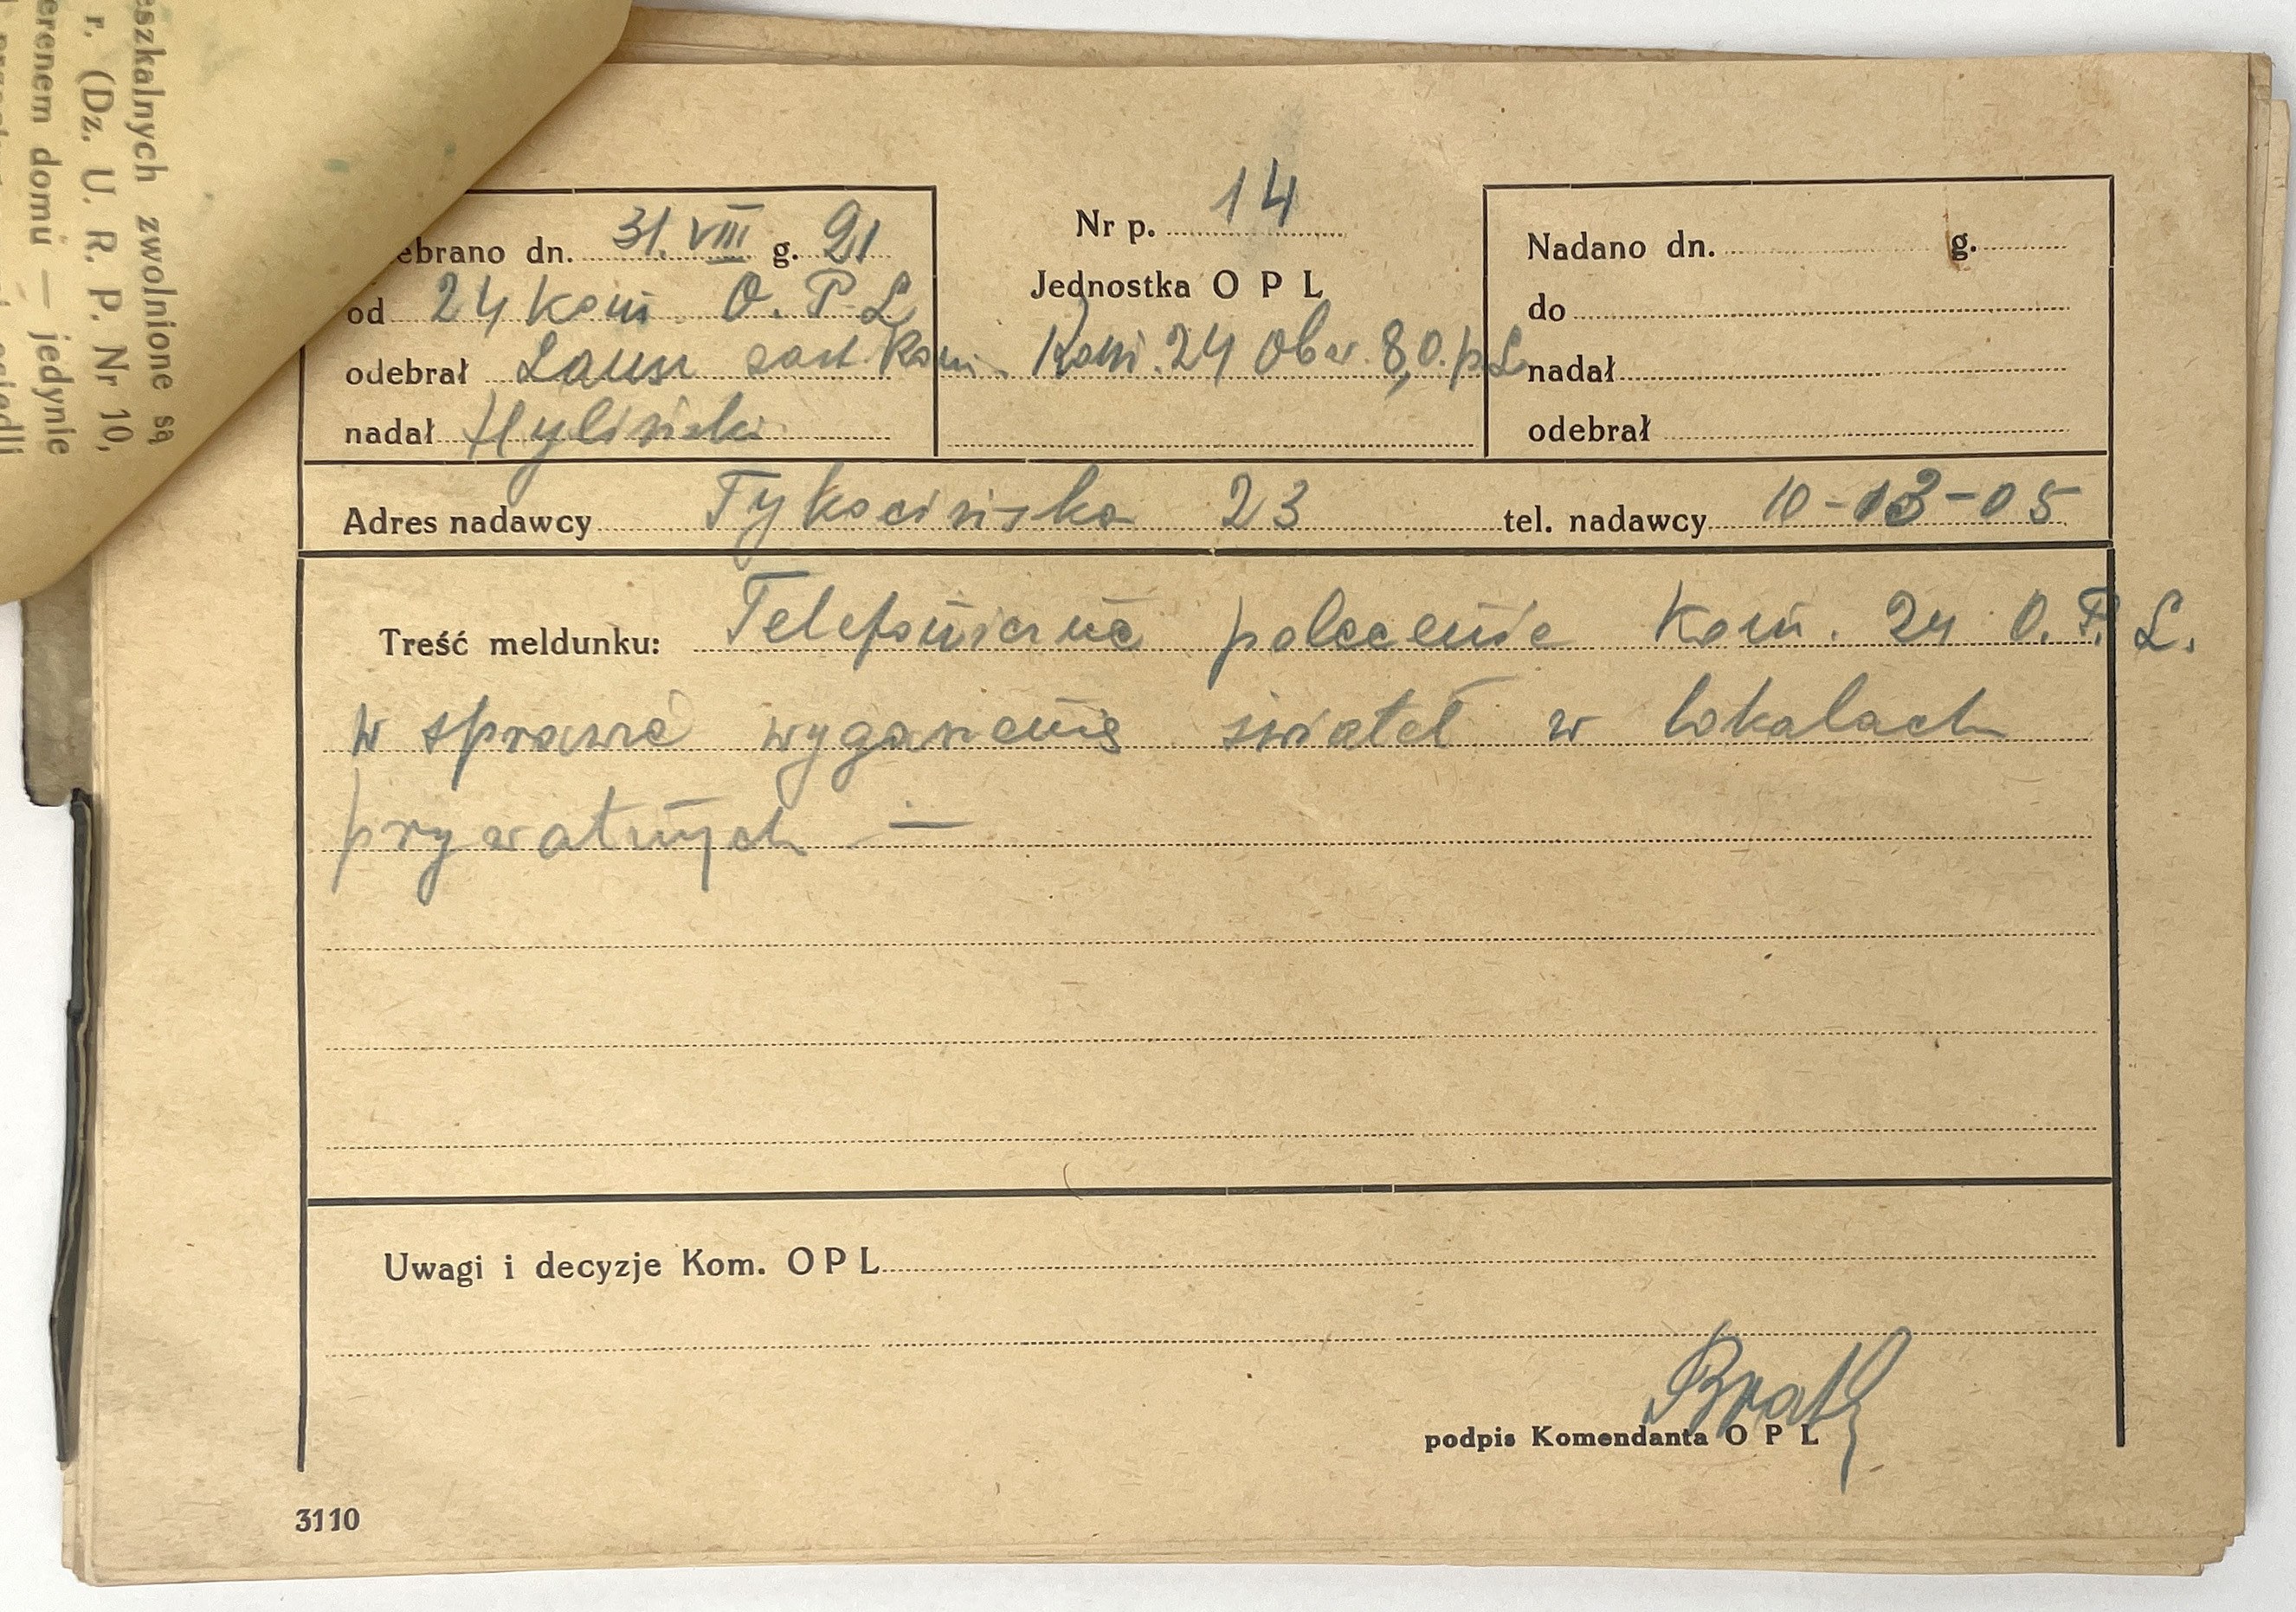 eszkalnych zwolnione są
r. (Dz. U. R. P. Nr 10,
erenem domu — jedynie
ebrano dn. 31. VIII g. 21
od 24 Kom. O. P. L
odebrał zast. Kom.
nadał Hyliński
Nr p. 14
Jednostka O P L
Kom. 24 Obw. 8, O. p. L.
Nadano dn. g.
do
nadał
odebrał
Adres nadawcy Tykocińska 23 tel. nadawcy 10-13-05
Treść meldunku: Telefoniczne polecenie Kom. 24 O. P. L.
w sprawie wygaszenia świateł w lokalach
prywatnych —
Uwagi i decyzje Kom. O P L
podpis Komendanta O P L
3110